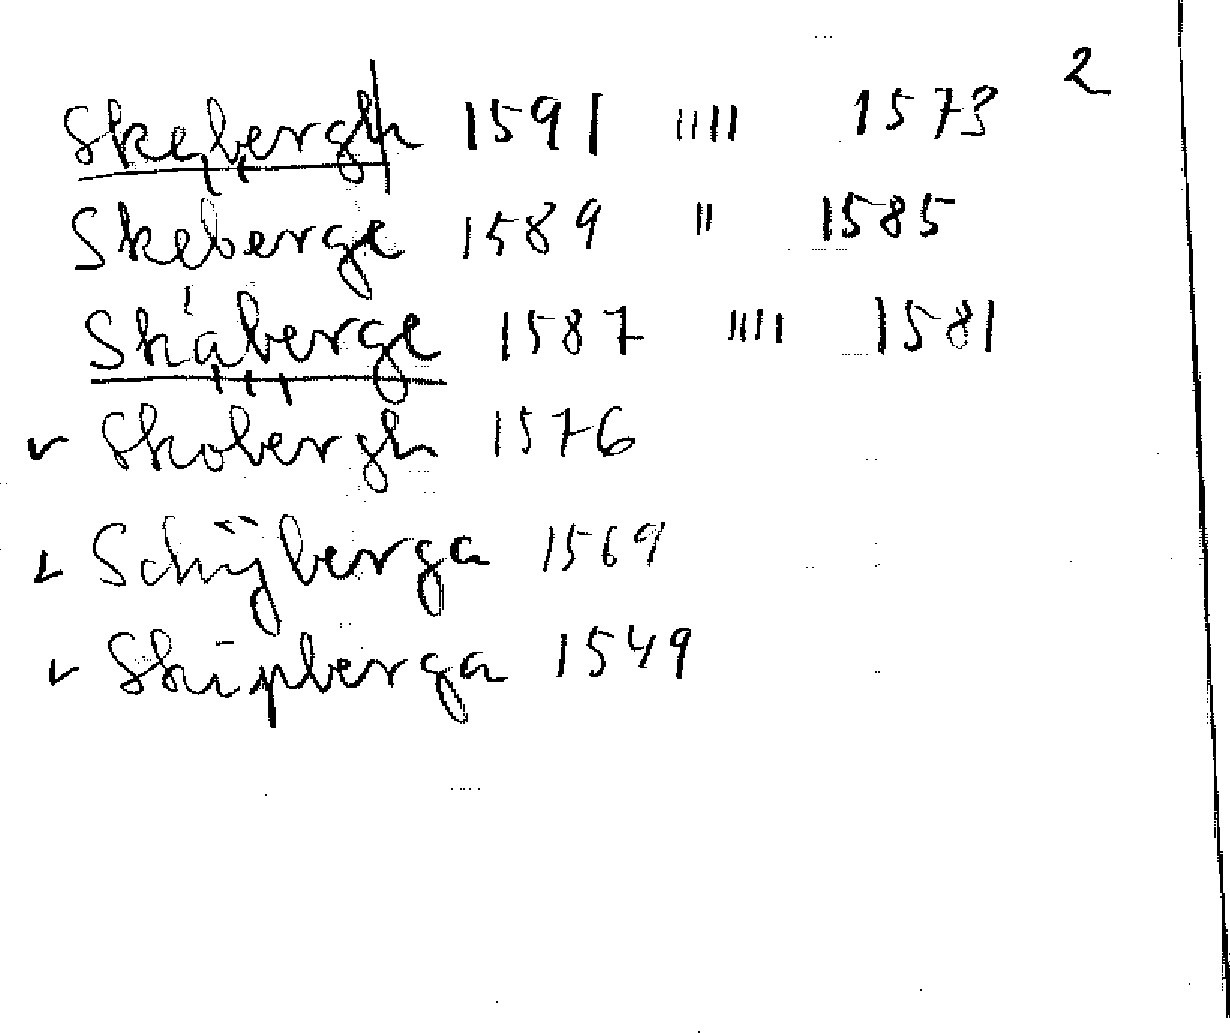 2
Skebergh 1591 ıııı 1573
Skeberge 1589 ıı 1585
Skáberge 1587 ıııı 1581
Skobergh 1576
Schÿberga 1569
Skipberga 1549